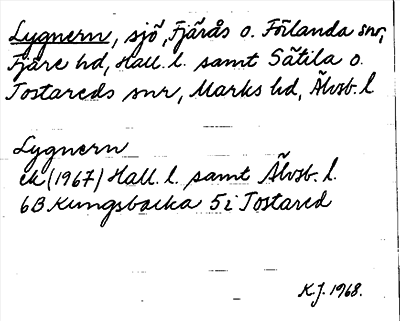 Lygnern, sjö, Fjärås o. Förlanda snr,
Fjäre hd, Hall. l. samt Sätila o.
Tostareds snr, Marks hd, Älvsb. l
Lygnern
ek (1967) Hall. l. samt Älvsb. l.
6B Kungsbacka 5i Tostared
KJ. 1968.